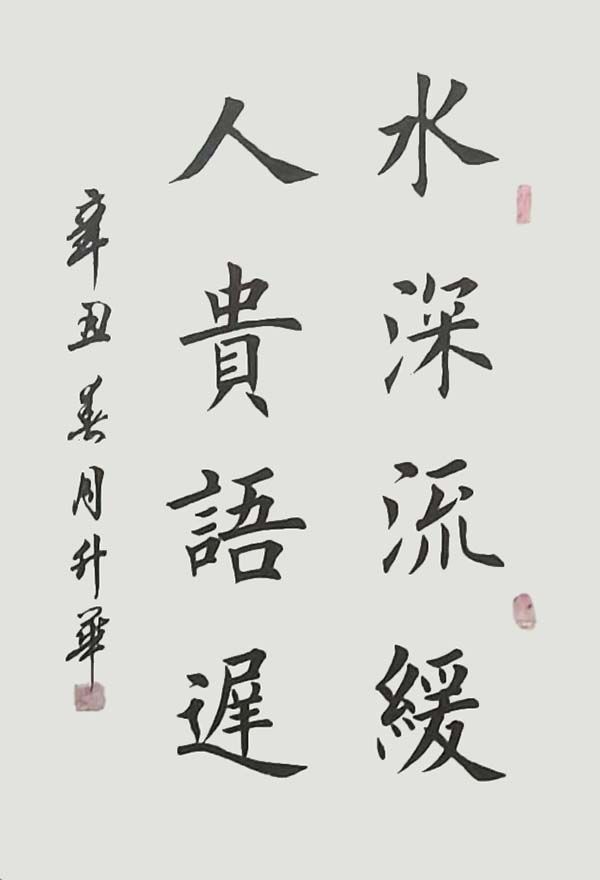 水深流緩
人貴語遲
辛丑春月升華